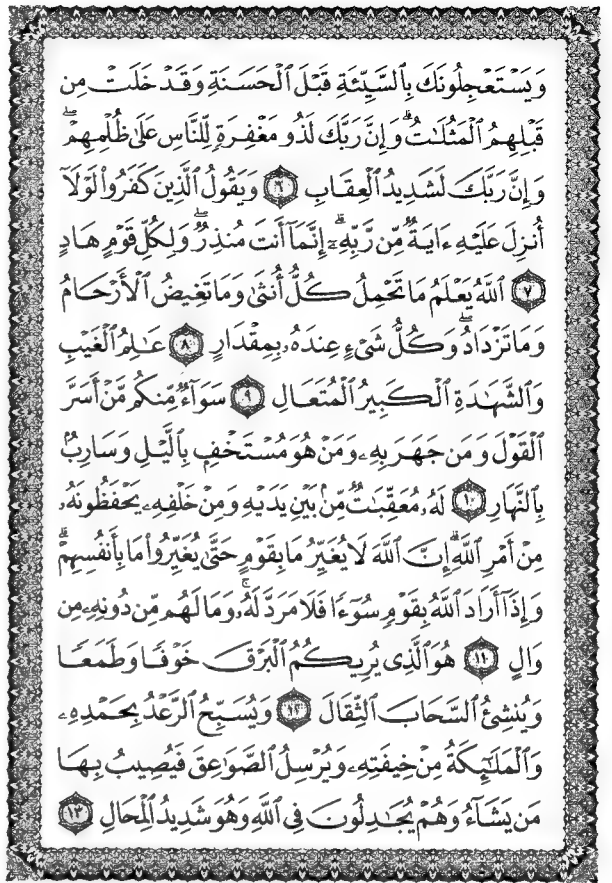 وَيَسْتَعْجِلُونَكَ بِٱلسَّيِّئَةِ قَبْلَ ٱلْحَسَنَةِ وَقَدْ خَلَتْ مِن
قَبْلِهِمُ ٱلْمَثُلَٰتُ ۗ وَإِنَّ رَبَّكَ لَذُو مَغْفِرَةٍ لِّلنَّاسِ عَلَىٰ ظُلْمِهِمْ ۖ
وَإِنَّ رَبَّكَ لَشَدِيدُ ٱلْعِقَابِ ٦ وَيَقُولُ ٱلَّذِينَ كَفَرُوا۟ لَوْلَآ
أُنزِلَ عَلَيْهِ ءَايَةٌ مِّن رَّبِّهِۦٓ ۗ إِنَّمَآ أَنتَ مُنذِرٌ ۖ وَلِكُلِّ قَوْمٍ هَادٍ
٧ ٱللَّهُ يَعْلَمُ مَا تَحْمِلُ كُلُّ أُنثَىٰ وَمَا تَغِيضُ ٱلْأَرْحَامُ
وَمَا تَزْدَادُ ۖ وَكُلُّ شَىْءٍ عِندَهُۥ بِمِقْدَارٍ ٨ عَٰلِمُ ٱلْغَيْبِ
وَٱلشَّهَٰدَةِ ٱلْكَبِيرُ ٱلْمُتَعَالِ ٩ سَوَآءٌ مِّنكُم مَّنْ أَسَرَّ
ٱلْقَوْلَ وَمَن جَهَرَ بِهِۦ وَمَنْ هُوَ مُسْتَخْفٍۭ بِٱلَّيْلِ وَسَارِبٌۢ
بِٱلنَّهَارِ ١٠ لَهُۥ مُعَقِّبَٰتٌ مِّنۢ بَيْنِ يَدَيْهِ وَمِنْ خَلْفِهِۦ يَحْفَظُونَهُۥ
مِنْ أَمْرِ ٱللَّهِ ۗ إِنَّ ٱللَّهَ لَا يُغَيِّرُ مَا بِقَوْمٍ حَتَّىٰ يُغَيِّرُوا۟ مَا بِأَنفُسِهِمْ ۗ
وَإِذَآ أَرَادَ ٱللَّهُ بِقَوْمٍ سُوٓءًا فَلَا مَرَدَّ لَهُۥ ۚ وَمَا لَهُم مِّن دُونِهِۦ مِن
وَالٍ ١١ هُوَ ٱلَّذِى يُرِيكُمُ ٱلْبَرْقَ خَوْفًا وَطَمَعًا
وَيُنشِئُ ٱلسَّحَابَ ٱلثِّقَالَ ١٢ وَيُسَبِّحُ ٱلرَّعْدُ بِحَمْدِهِۦ
وَٱلْمَلَٰٓئِكَةُ مِنْ خِيفَتِهِۦ وَيُرْسِلُ ٱلصَّوَٰعِقَ فَيُصِيبُ بِهَا
مَن يَشَآءُ وَهُمْ يُجَٰدِلُونَ فِى ٱللَّهِ وَهُوَ شَدِيدُ ٱلْمِحَالِ ١٣